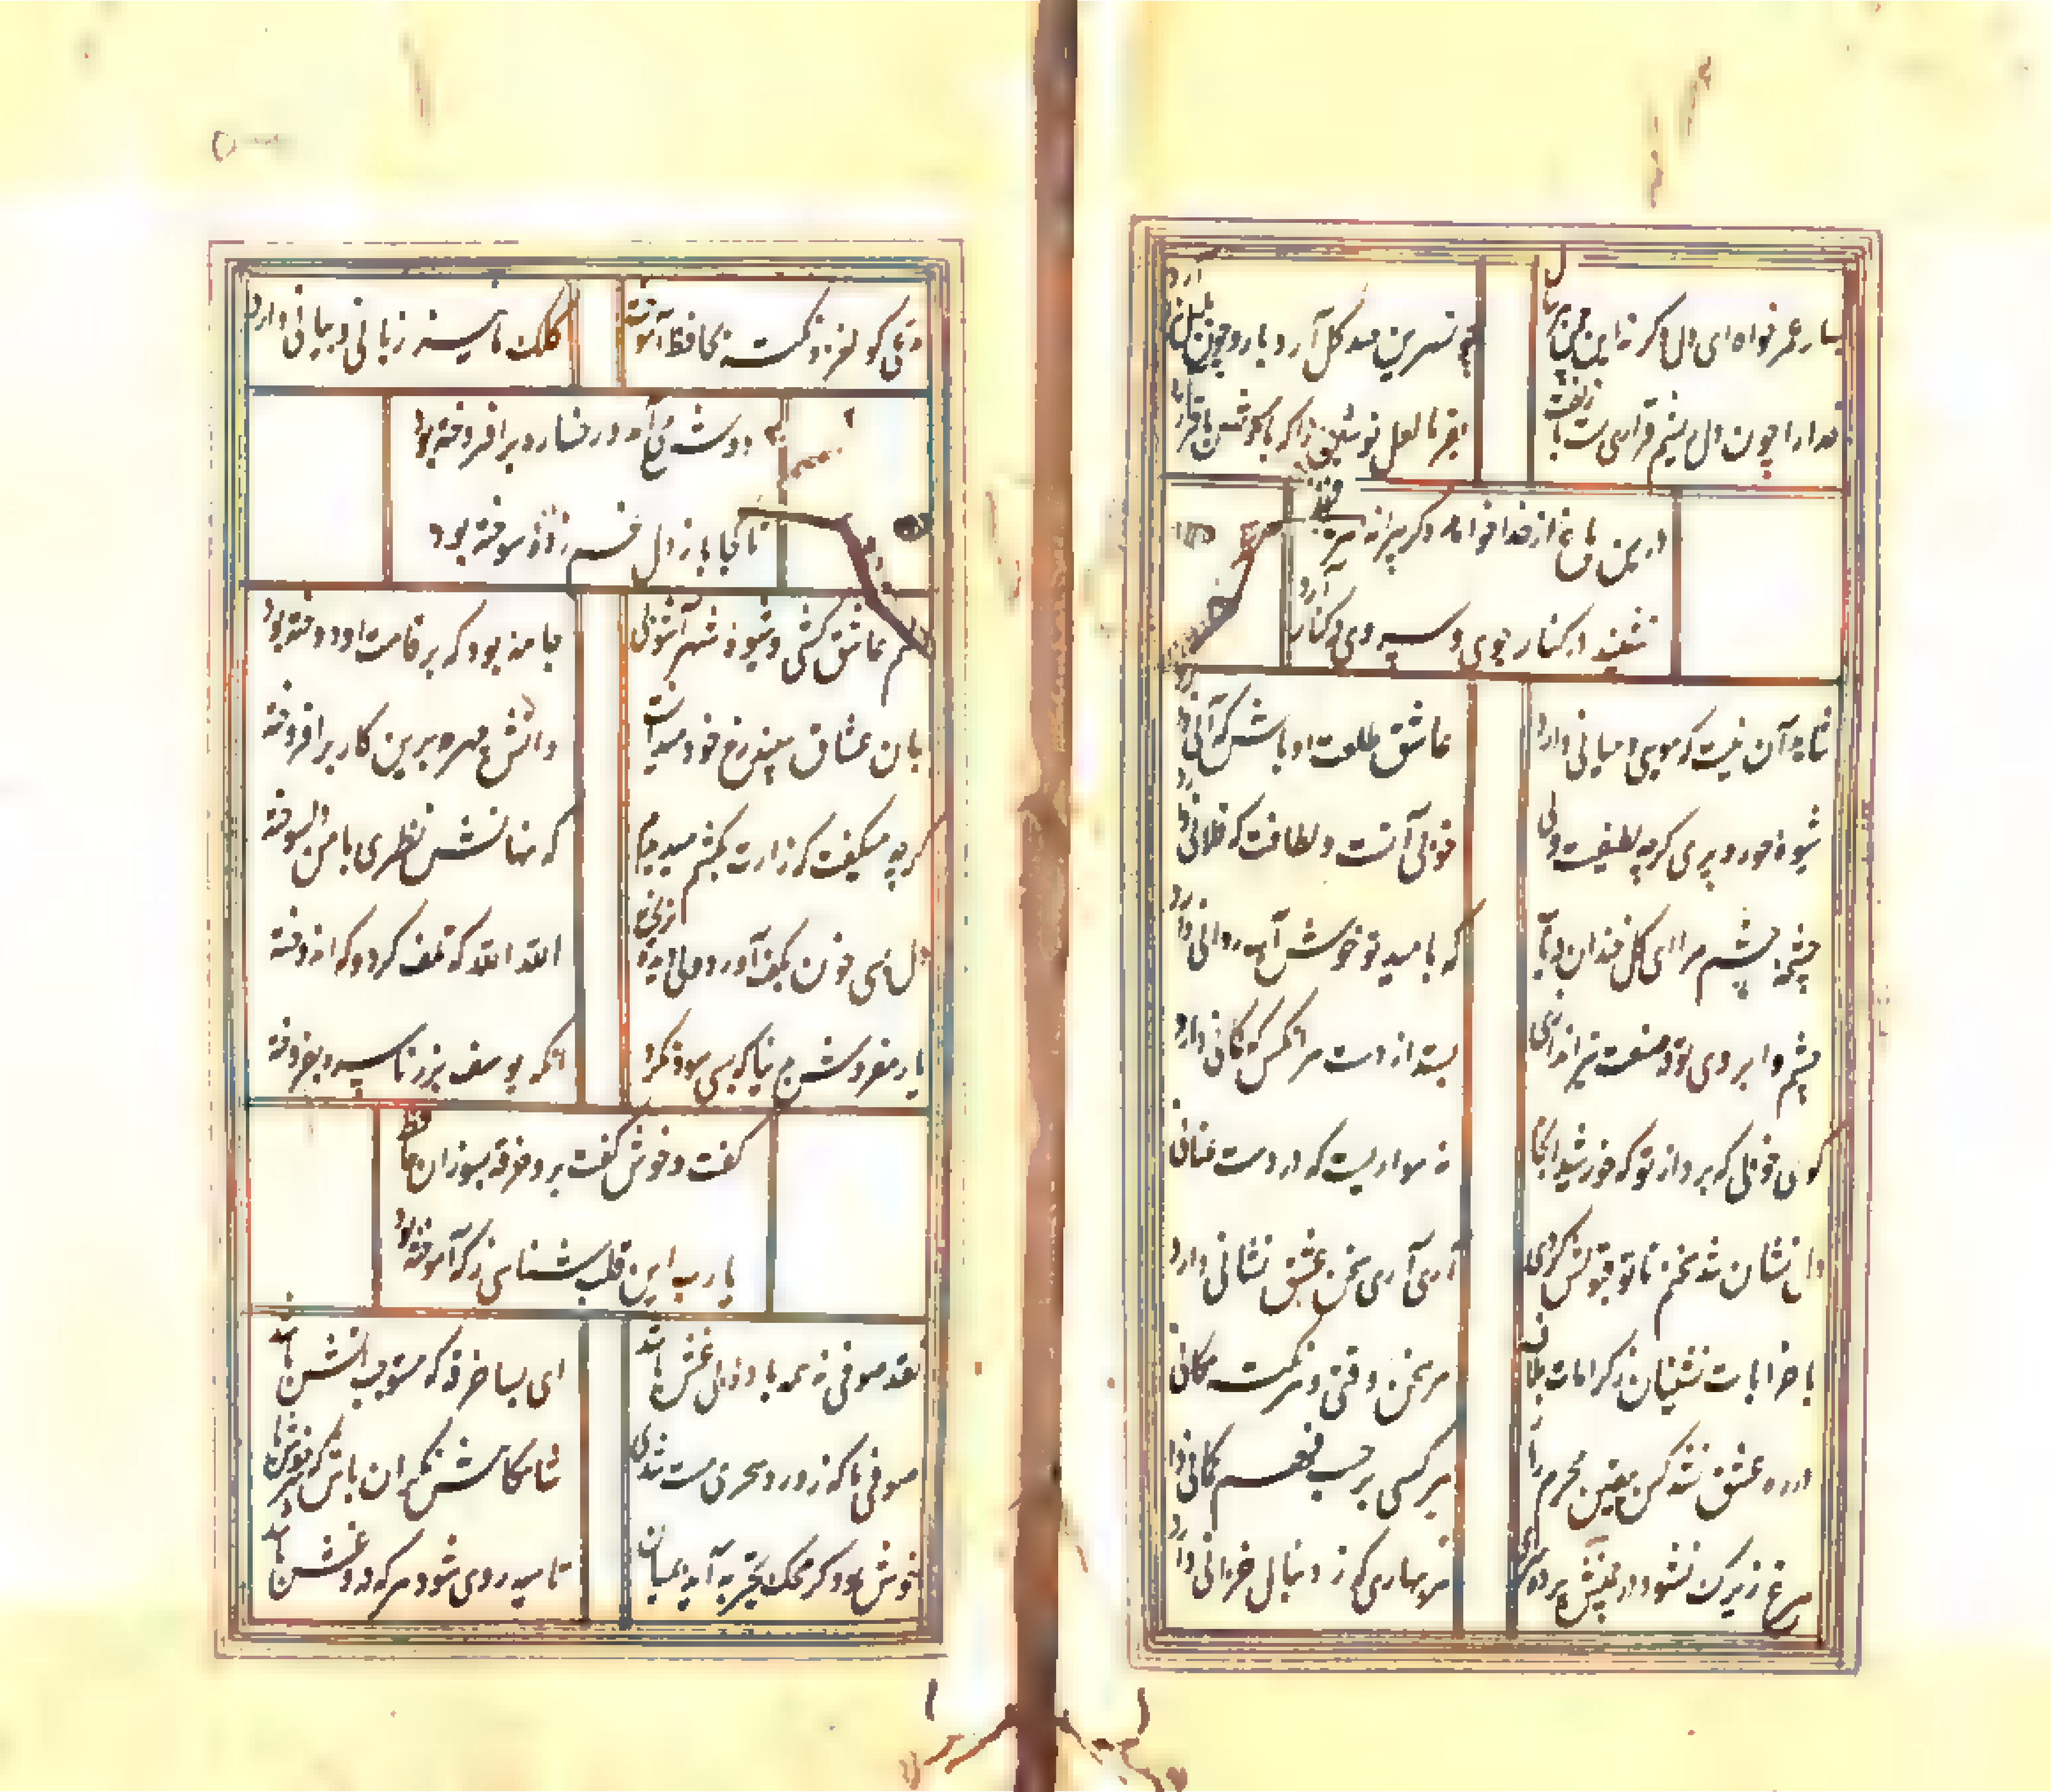 بهار عمر خواه ای دل وگرنه این چمن هر سال
چو نسرین صد گل آرد بار و چون بلبل هزار آرد
خدا را چون دل ریشم قراری بست با زلفت
بفرما لعل نوشین را که باحوشش باقرار آرد
درین باغ از خدا خواهد دگر پیرانه سر حافظ
نشیند در کنار جوی و سروی در کنار آرد
شاهد آن نیست که مویی و میانی دارد
عاشق طلعت او باش که آنی دارد
شیوه حور و پری گرچه لطیفست ولی
خوبی آنست و لطافت که فلانی دارد
چشمه چشم مرا ای گل خندان دریاب
که بامید تو خوش آب روانی دارد
خم ابروی تو در صنعت تیراندازی
بستد از دست هر آنکس که کمانی دارد
گوی خوبی که برد از تو که خورشید آنجا
نه سواریست که در دست عنانی
دل نشان شد سخنم تا تو قبولش کردی
آری آری سخن عشق نشانی دارد
با خرابات نشینان ز کرامات ملاف
هر سخن وقتی و هر نکته مکانی
در ره عشق نشد کس بیقین محرم راز
هر کسی بر حسب فهم گمانی دارد
مرغ زیرک نشود در چمنش پرده سرای
هر بهاری که ز دنبال خزانی دارد
مدعی گو لغز و نکته بحافظ مفروش
کلک ما نیز زبانی و بیانی دارد
دوش می آمد و رخساره برافروخته بود
تا کجا باز دل غمزده سوخته بود
رسم عاشق کشی و شیوه شهر آشوبی
جامه بود که بر قامت او دوخته بود
جان عشاق سپند رخ خود میدانست
واتش چهره برین کار برافروخته
گرچه میگفت که زارت بکشم میدیدم
که نهانش نظری با من دلسوخته
دل بسی خون بکف آورد ولی دیده بریخت
الله الله که تلف کرد و که اندوخته
یار مفروش بدنیا که بسی سود نکرد
آنکه یوسف بزر ناسره بفروخته
گفت و خوش گفت برو خرقه بسوزان حافظ
یا رب این قلب شناسی ز که آموخته بود
نقد صوفی نه همه باده بی غش باشد
ای بسا خرقه که مستوجب آتش باشد
صوفی ما که ز ورد سحری مست شدی
شامگاهش نگران باش که سرخوش باشد
خوش بود گر محک تجربه آید بمیان
تا سیه روی شود هر که درو غش باشد